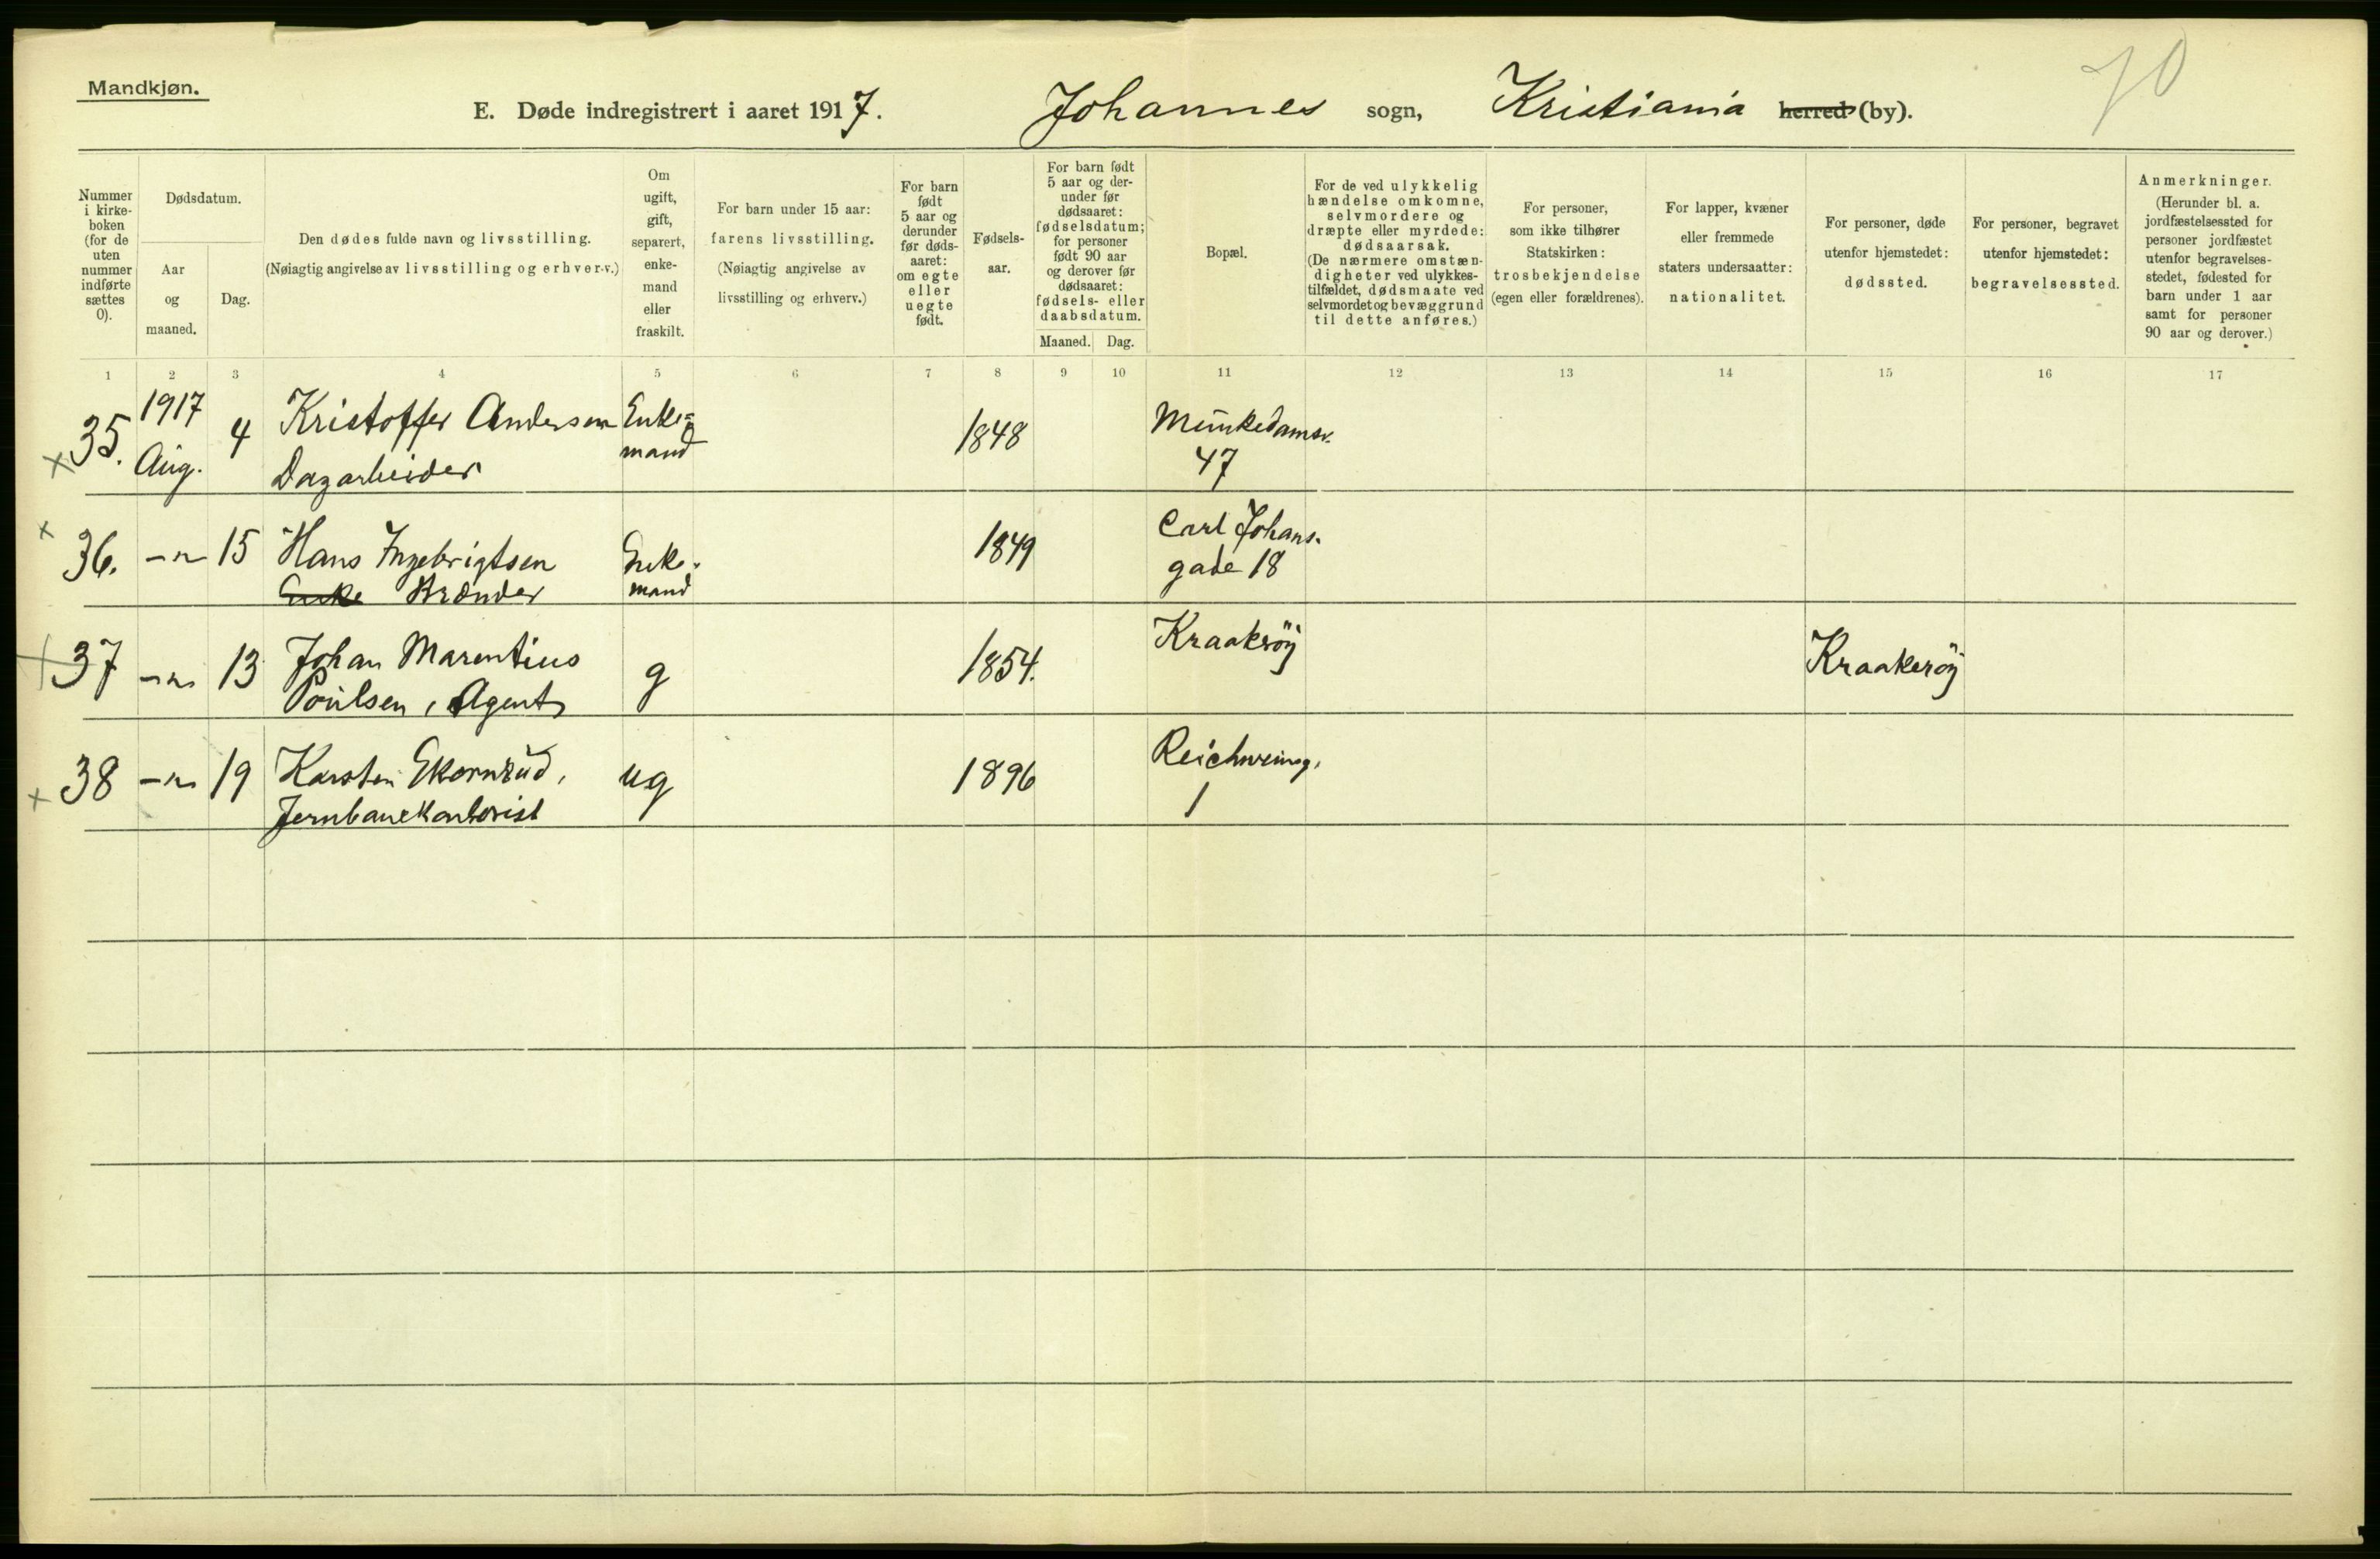 Mandkjøn.
70
E. Døde indregistrert i aaret 1917. Johannes sogn, Kristiania herred (by).
Nummer i kirke-boken (for de uten nummer indførte sættes 0).
Dødsdatum.
Aar og maaned.
Dag.
Den dødes fulde navn og livsstilling.
(Nøiagtig angivelse av livsstilling og erhverv.)
Om ugift, gift, separert, enke-mand eller fraskilt.
For barn under 15 aar:
farens livsstilling.
(Nøiagtig angivelse av livsstilling og erhverv.)
For barn født 5 aar og derunder før døds-aaret: om egte eller uegte født.
Fødsels-aar.
For barn født 5 aar og der-under før dødsaaret: fødselsdatum; for personer født 90 aar og derover før dødsaaret: fødsels- eller daabsdatum.
Maaned. Dag.
Bopæl.
For de ved ulykkelig hændelse omkomne, selvmordere og dræpte eller myrdede: dødsaarsak.
(De nærmere omstæn-digheter ved ulykkes-tilfældet, dødsmaate ved selvmordet og bevæggrund til dette anføres.)
For personer, som ikke tilhører Statskirken: trosbekjendelse (egen eller forældrenes).
For lapper, kvæner eller fremmede staters undersaatter: nationalitet.
For personer, døde utenfor hjemstedet: dødssted.
For personer, begravet utenfor hjemstedet: begravelsessted.
Anmerkninger.
(Herunder bl. a. jordfæstelsessted for personer jordfæstet utenfor begravelses-stedet, fødested for barn under 1 aar samt for personer 90 aar og derover.)
1 2 3 4 5 6 7 8 9 10 11 12 13 14 15 16 17
35. 1917 Aug. 4 Kristoffer Andersen Enke-mand 1848 Munkedamsv. 47
Dagarbeider
36. -"- 15 Hans Ingebrigtsen Enke-mand 1849 Carl Johans-gade 18
Enke Brænder
37 -"- 13 Johan Marentius g 1854. Kraakerøy Kraakerøy
Poulsen, Agent
38 -"- 19 Karsten Ekornrud, ug 1896 Reichweinsg. 1
Jernbanekontorist